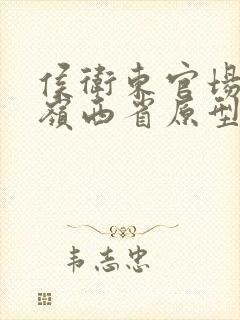 侯衛東官場
嶺西省原型
韦志忠